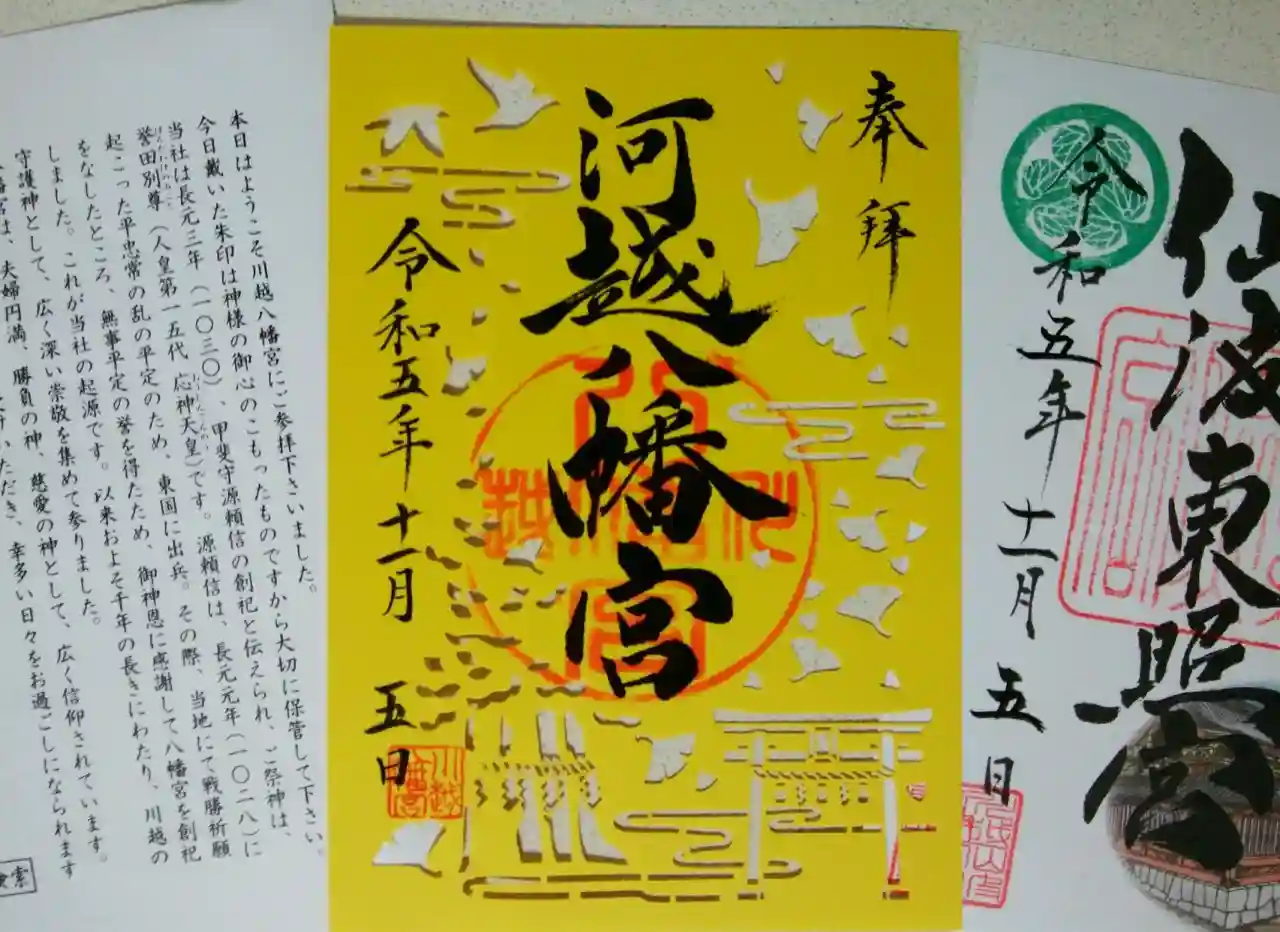 本日はようこそ川越八幡宮にご参拝下さいました。
今日戴いた朱印は神様の御心のこもったものですから大切に保管して下さい。
当社は長元三年(一〇三〇)、甲斐守源頼信の創祀と伝えられ、ご祭神は、
誉田別尊(人皇第一五代 応神天皇)です。源頼信は、長元元年(一〇二八)に
起こった平忠常の乱の平定のため、東国に出兵。その際、当地にて戦勝祈願
をなしたところ、無事平定の挙を得たため、御神恩に感謝して八幡宮を創祀
しました。これが当社の起源です。以来およそ千年の長きにわたり、川越の
守護神として、広く深い崇敬を集めて参りました。
幡宮は、夫婦円満、勝負の神、慈愛の神として、広く信仰されています。
いただき、幸多い日々をお過ごしになられます
検索
奉拝
河越八幡宮
令和五年十一月五日
川越八幡宮
仙波東照宮
令和五年十一月五日